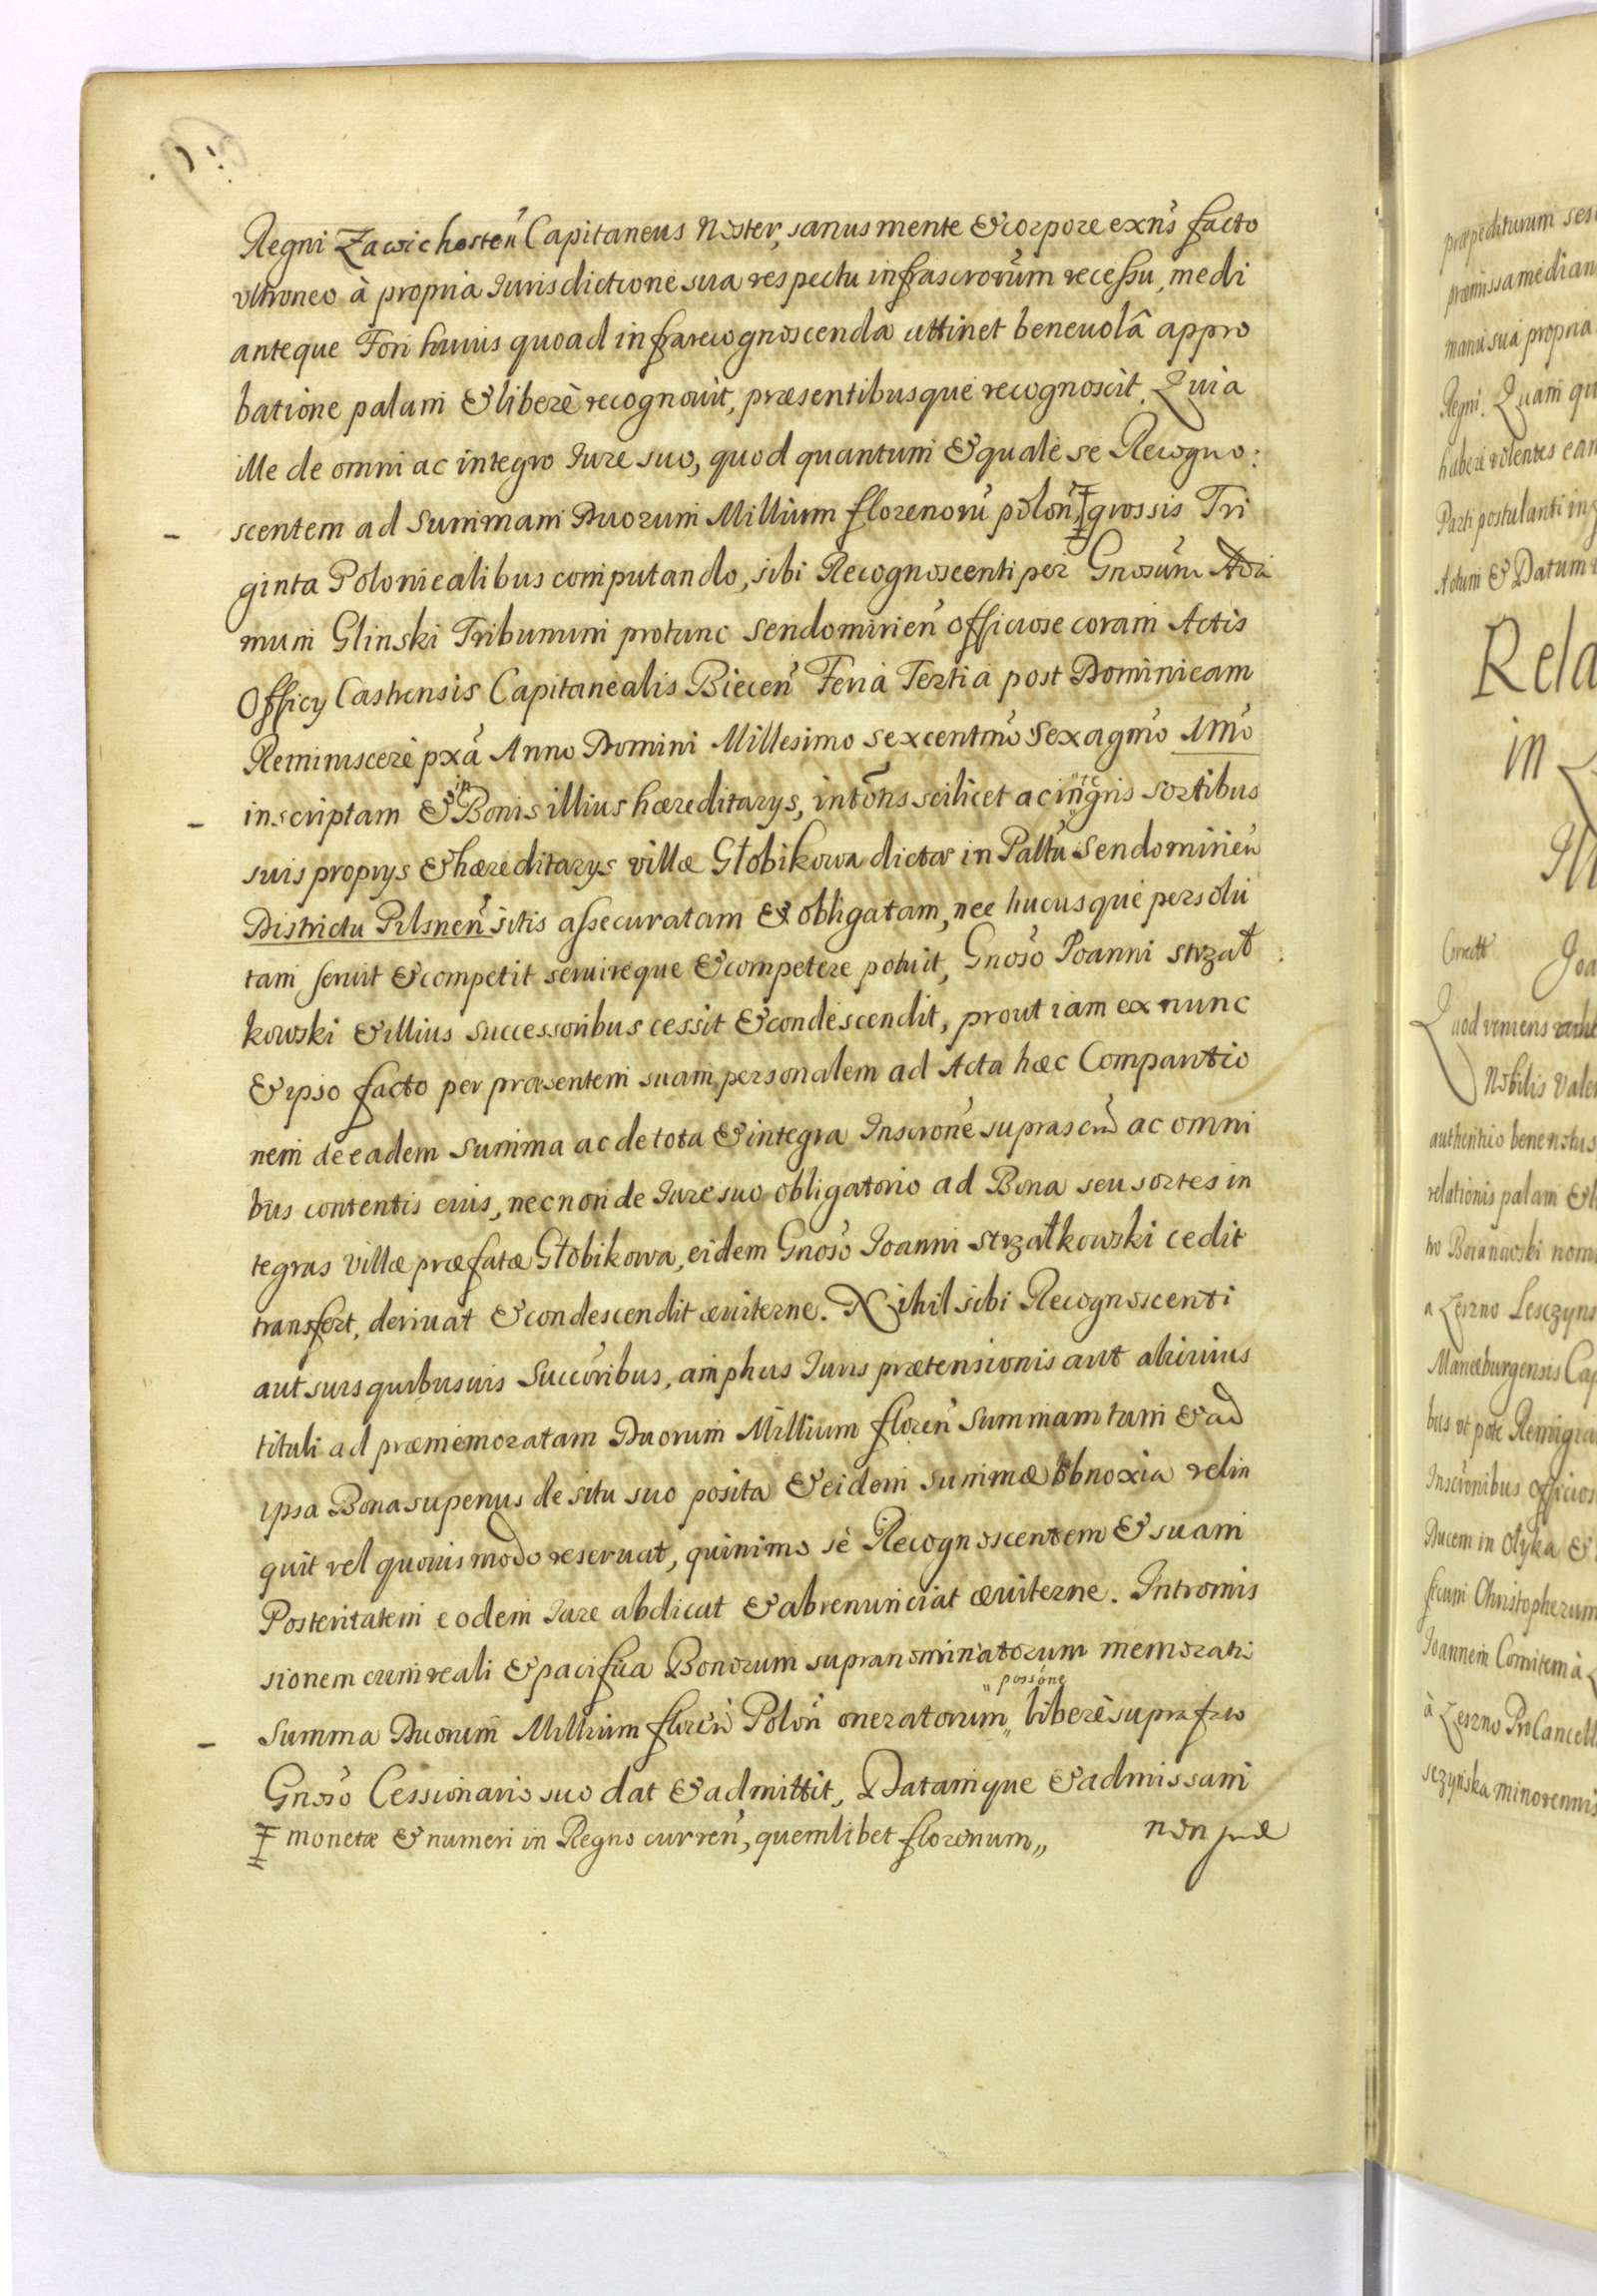 Regni Zawichosteñ Capitaneus Noster, sanus mente & corpore exñs facto
vltroneo à propria Iurisdictione sua respectu infrascrorum recessu, medi
anteque Fori huius quoad infrarecognoscenda attinet beneuolâ appro
batione palam & liberè recognouit, præsentibusque recognoscit. Quia
ille de omni ac integro Iure suo, quod quantum & quale se Recogno:
scentem ad Summam Duorum Millium florenorũ poloñ, grossis Tri
ginta Polonicalibus computando, sibi Recognoscenti per Gnosum Ada
mum Glinski Tribunum protunc Sendomirieñ officiose coram Actis
Officy Castrensis Capitanealis Bieceñ Feria Tertia post Dominicam
Reminiscere pxa Anno Domini Millesimo sexcentmo Sexagmo 1mo
inscriptam & in Bonis illius hæreditarys, in toñs scilicet ac integris sortibus
suis proprys & hæreditarys villæ Głobikowa dictæ in Paltũ Sendomirieñ
Districtu Pilsneñ sitis assecuratam & obligatam, nec hucusque persolu
tam seruit & competit seruireque & competere potuit, Gnoso Ioanni Strzał
kowski & illius successoribus cessit & condescendit, prout iam ex nunc
& ipso facto per præsentem suam personalem ad Acta hæc Comparitio
nem de eadem summa ac de tota & integra Inscrone suprascrũ ac omni
bus contentis eius, nec non de Iure suo obligatorio ad Bona seu sortes in
tegras villæ præfatæ Głobikowa, eidem Gnoso Ioanni Strzałkowski cedit
transfert, deriuat & condescendit æuiterne. Nihil sibi Recognoscenti
aut suis quibusuis Succoribus, amplius Iuris prætensionis aut alicuius
tituli ad præmemoratam Duorum Millium floreñ Summam tum & ad
ipsa Bona superius de situ suo posita & eidem summæ obnoxia relin
quit vel quouis modo reseruat, quinimo se Recognoscentem & suam
Posteritatem eodem Iure abdicat & abrenunciat æuiterne. Intromis
sionem cum reali & pacifica Bonorum supranominatorum memorati
summa Duorum Millium floreñ Poloñ oneratorum „ possone „ liberè suprafto
Gnoso Cessionario suo dat & admittit, Datamque & admissam
monetæ & numeri in Regno curreñ, quemlibet florenum„ non præ
præpediturum sese
præmissa median
manu sua propria
Regni. Quam qu
habere volentes ean
Parti postulanti in
Actum & Datum
Rela
in
Ill
Joa
Quod veniens
Nobilis Vale
authentico bene notus
relationis palam & l
tro Boranowski nom
a Leszno Lesczyns
Mariæburgensis Cap
bus vt pote Remigia
Inscronibus officios
Ducem in Olyka &
ficum Christopherum
Ioannem Comitem à
à Leszno ProCancell
sczyńska minorennis